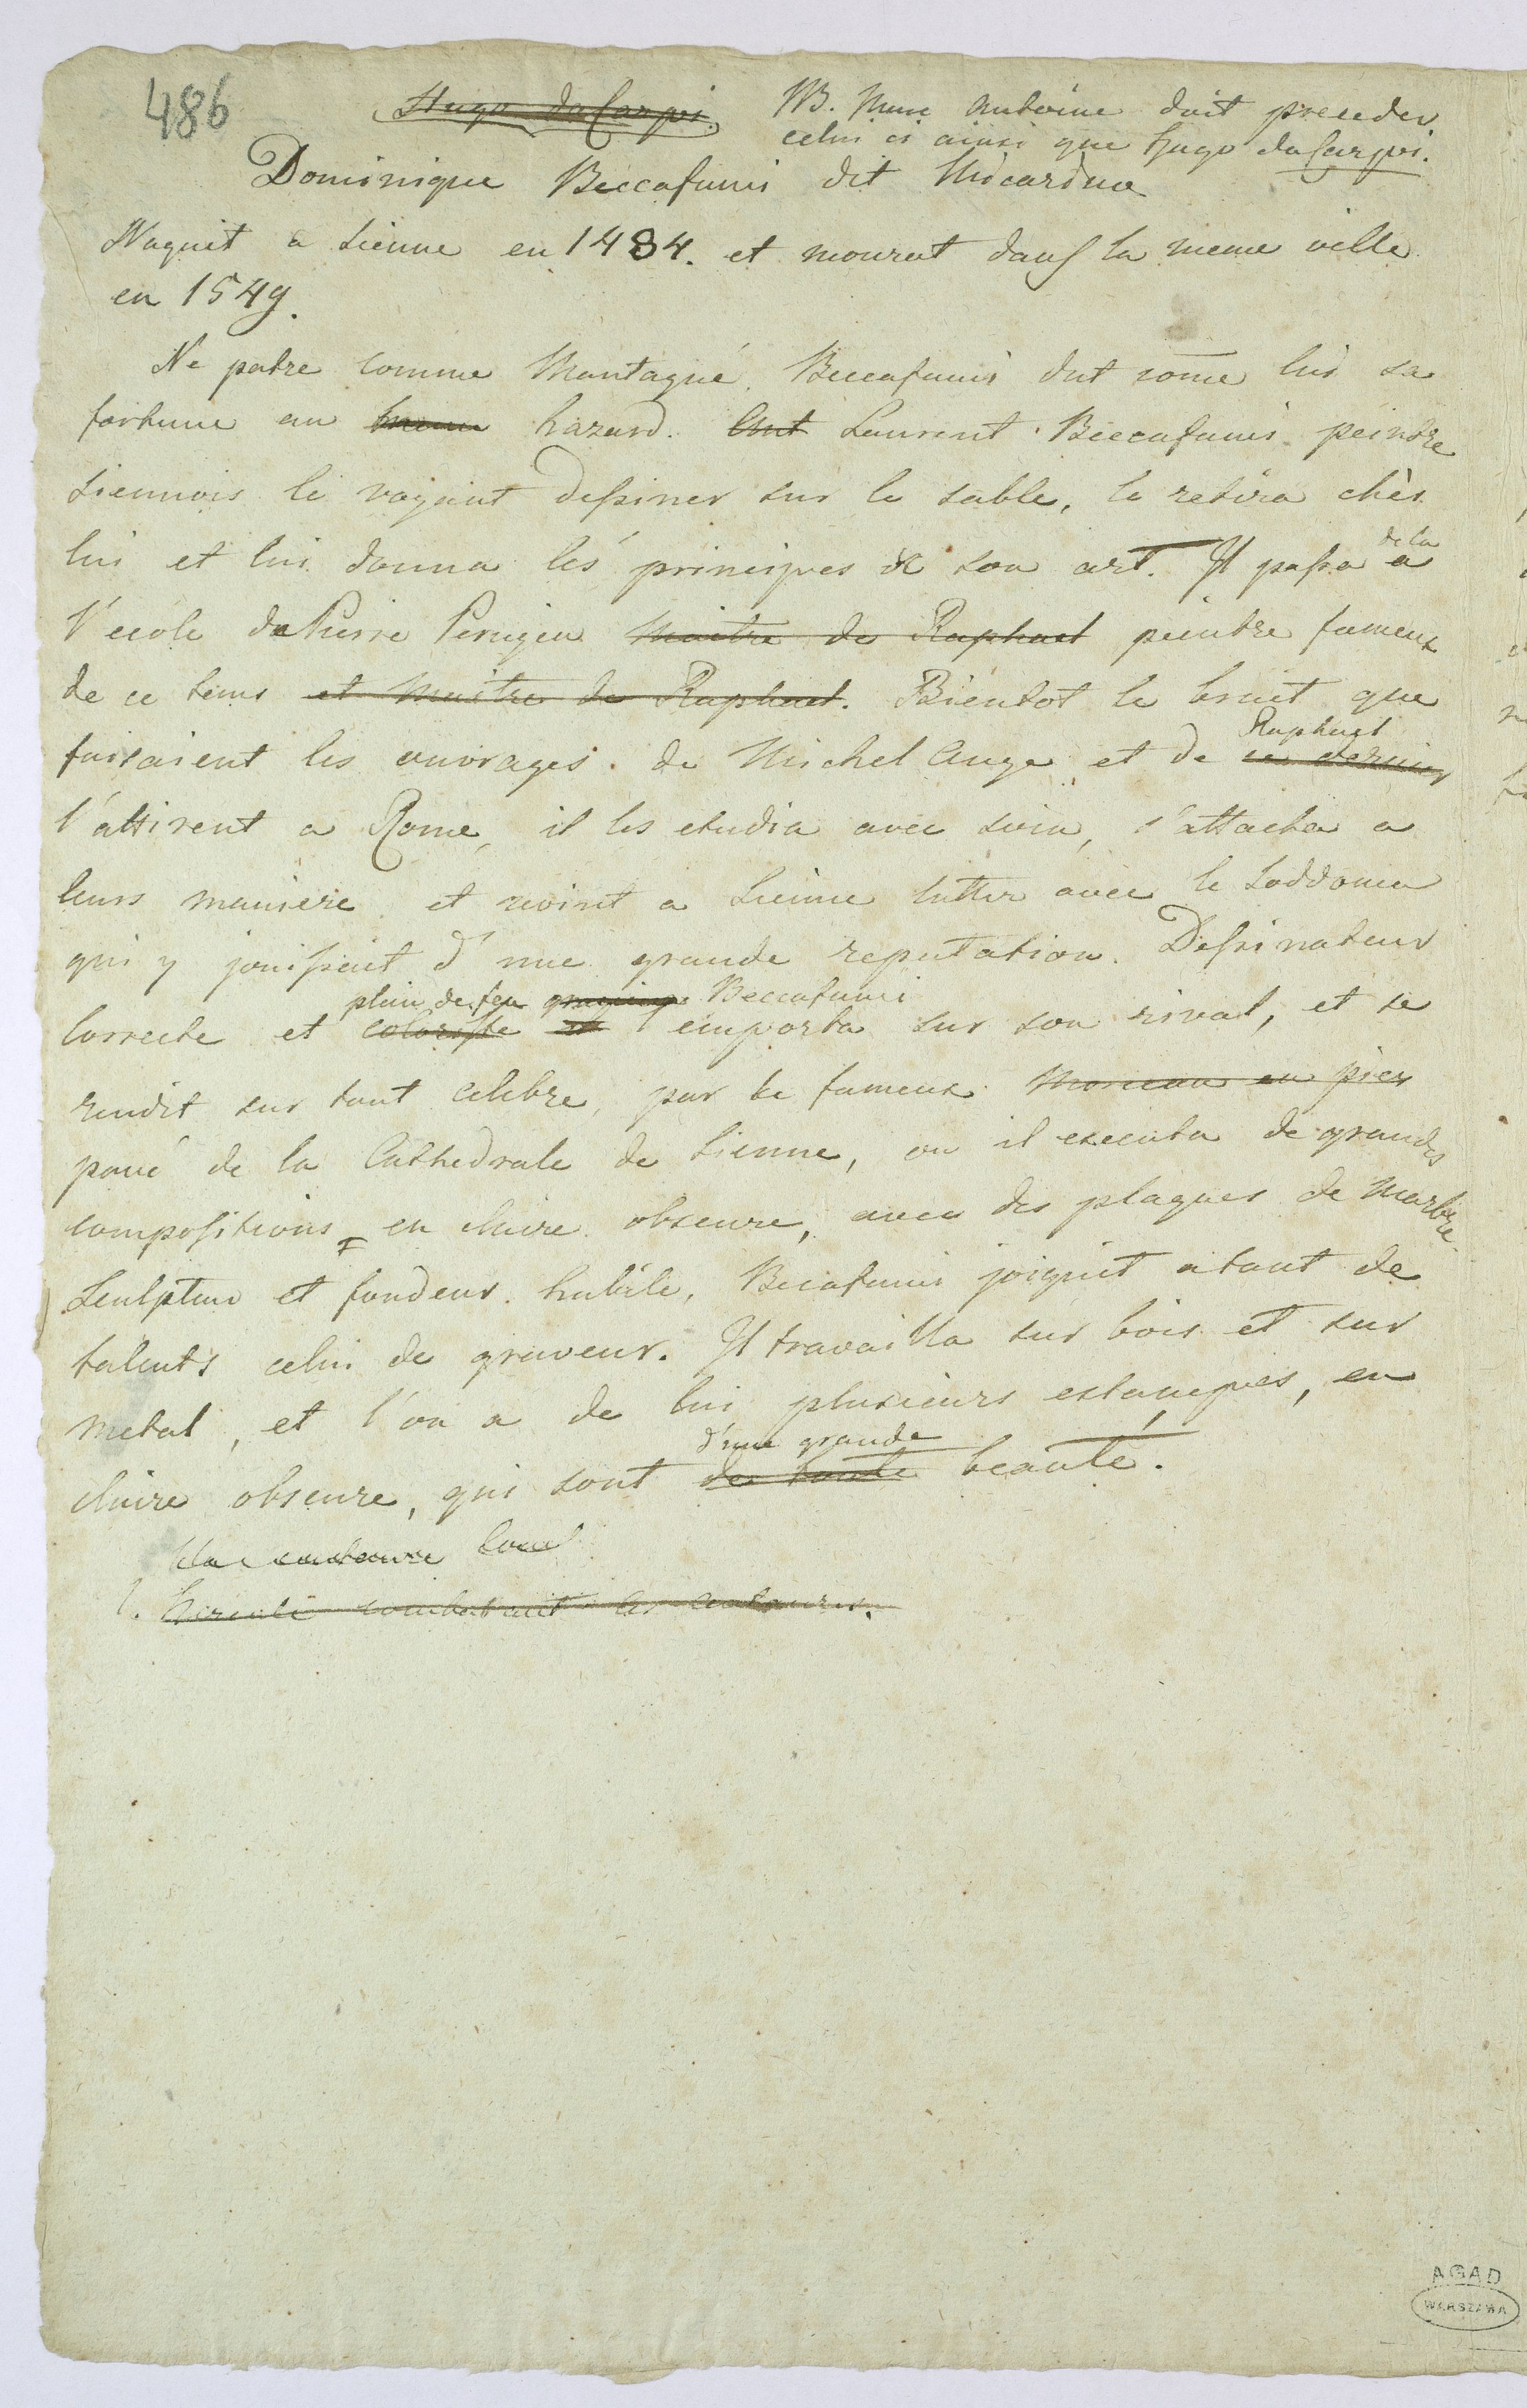 486
Hugo da Carpi.
NB. Marc Antoine doit preceder
celui ci ainsi que Hugo da Carpi.
Dominique Beccafumi dit Micarino
Naquit a Sienne en 1484. et mourut dans la meme ville
en 1549.
Né patre comme Mantagné. Beccafumi dut come lui sa
fortune au hazard. Laurent Beccafumi peintre
siennois le voyant dessiner sur le sable, le retira chès
lui et lui donna les principes de son art. Il passa de la a
l'ecole de Pierre Perugin maitre de Raphael peintre fameux
de ce tems et maitre de Raphael. Bientot le bruit que
faisaient les ouvrages de Michel Ange et de ce dernier Raphael
l'attirent a Rome, il les etudia avec soin, s'attacha a
leurs maniere et revint a Sienne lutter avec le Soddoma
qui y jouissait d'une grande reputation. Dessinateur
correcte et coloriste plein de feu Beccafumi l'emporta sur son rival, et se
rendit sur tout celebre, par le fameux morceau en pier
pavé de la Cathedrale de Sienne, ou il executa de grandes
compositions en claire obscure, avec des plaques de Marbre
Sculpteur et fondeur habile, Becafumi joignit a tant de
talents celui de graveur. Il travailla sur bois et sur
metal, et l'on a de lui plusieurs estampes, en
claire obscure, qui sont de toute d'une grande beauté.
1. Hercule combattant les centaures.
AGAD
WARSZAWA